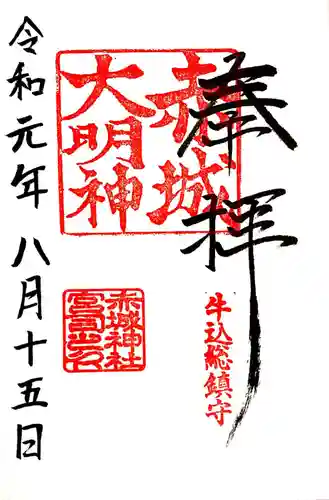 奉拝
赤城
大明神
牛込総鎮守
赤城神社
宮司之印
令和元年八月十五日